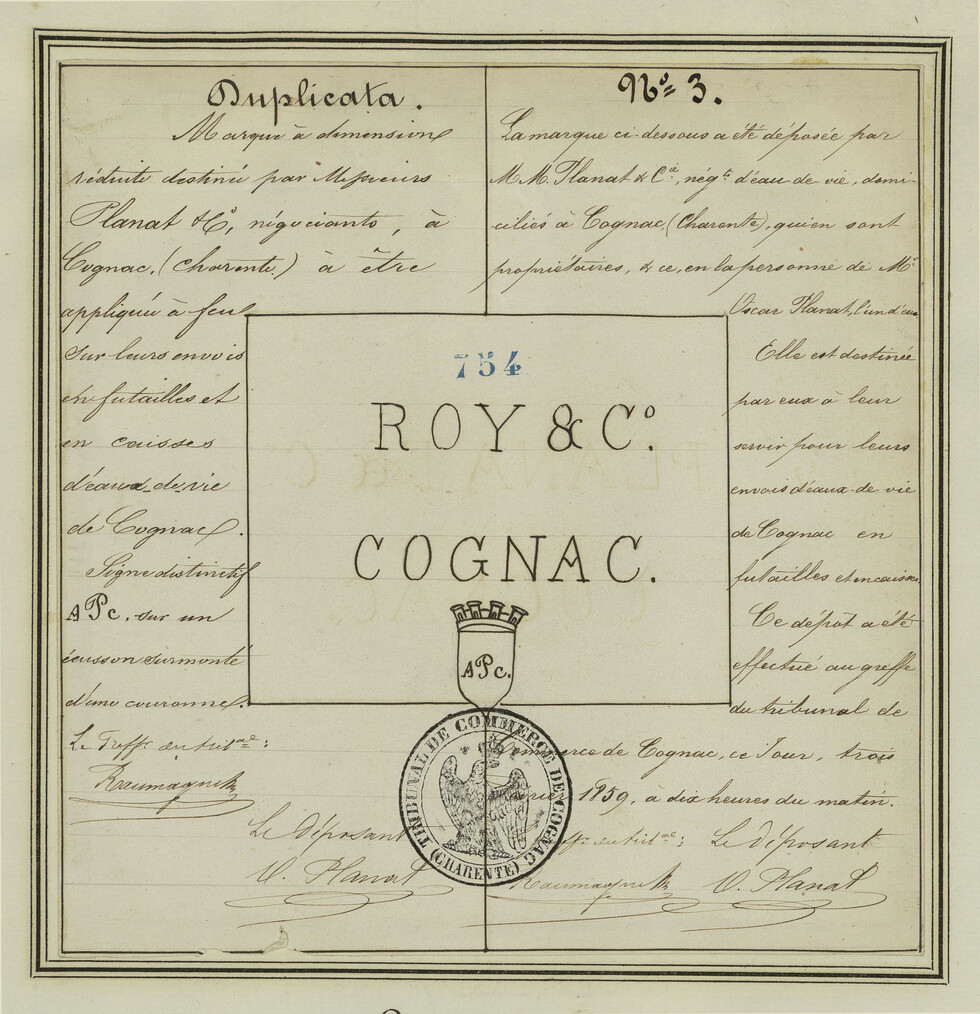 Duplicata.
Marque à dimension
réduite destinée par Messieurs
Planat & Cº, négociants, à
Cognac, (charente.) à être
appliquée à feu
sur leurs envois
en futailles et
en caisses
d'eaux-de-vie
de Cognac.
Signe distinctif
APc. sur un
écusson surmonté
d'une couronne.
Le Greff. du trib.al :
Le déposant
O. Planat
Nº= 3.
La marque ci-dessous a été déposée par
M.M. Planat & Cie, négts d'eau-de-vie, domi-
ciliés à Cognac, (Charente), qui en sont
propriétaires, & ce, en la personne de Mr
Oscar Planat, l'un d'eux
Elle est destinée
par eux à leur
servir pour leurs
envois d'eaux-de-vie
de Cognac en
futailles et en caisses.
Ce dépôt a été
effectué au greffe
du tribunal de
Commerce de Cognac, ce Jour, trois
février 1859, à dix heures du matin.
Greff. du trib.al : Le déposant
O. Planat
754
ROY & Cº.
COGNAC.
APc.
TRIBUNAL DE COMMERCE DE COGNAC
(CHARENTE)